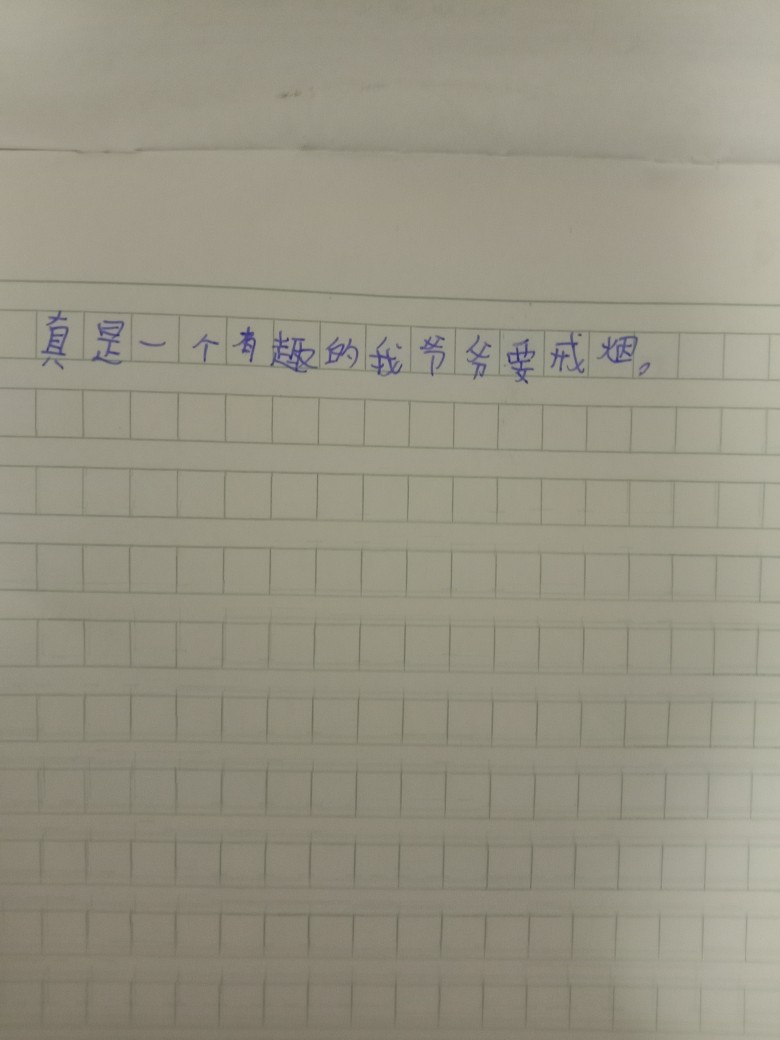 真是一个有趣的我爷爷要戒烟。